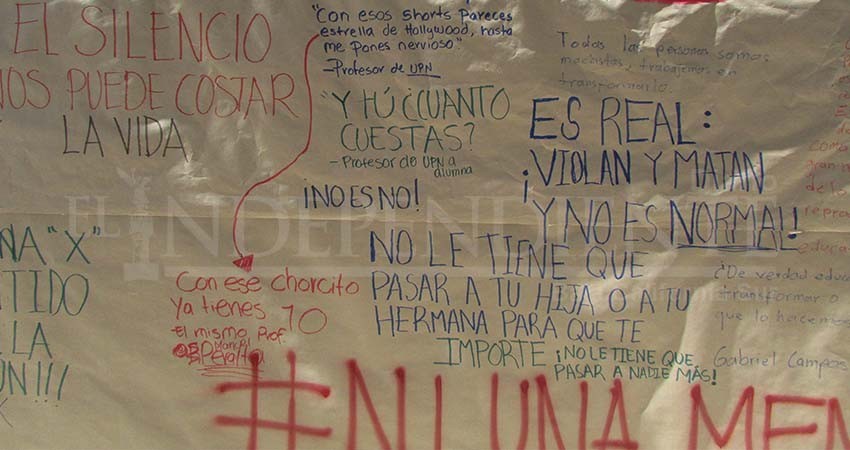 EL SILENCIO
NOS PUEDE COSTAR
LA VIDA
"Con esos shorts pareces
estrella de Hollywood, hasta
me pones nervioso"
-Profesor de UPN
"Y TÚ ¿CUANTO
CUESTAS?
- Profesor de UPN a
alumna
¡NO ES NO!
Todas las personas somos
machistas, trabajemos en
transformarlo.
ES REAL:
¡VIOLAN Y MATAN
Y NO ES NORMAL!
NO LE TIENE QUE
PASAR A TU HIJA O A TU
HERMANA PARA QUE TE
IMPORTE
¡NO LE TIENE QUE
PASAR A NADIE MÁS!
Con ese chorcito
Ya tienes 10
El mismo Prof.
Manuel
Peralta
NA "X"
TIDO
LA
ÓN!!!
como
gran
de lo
repro
educa
¿De verdad educa
transformar o
que lo hacemos
Gabriel Campos
#NI UNA MEN
EL INDEPENDIEN